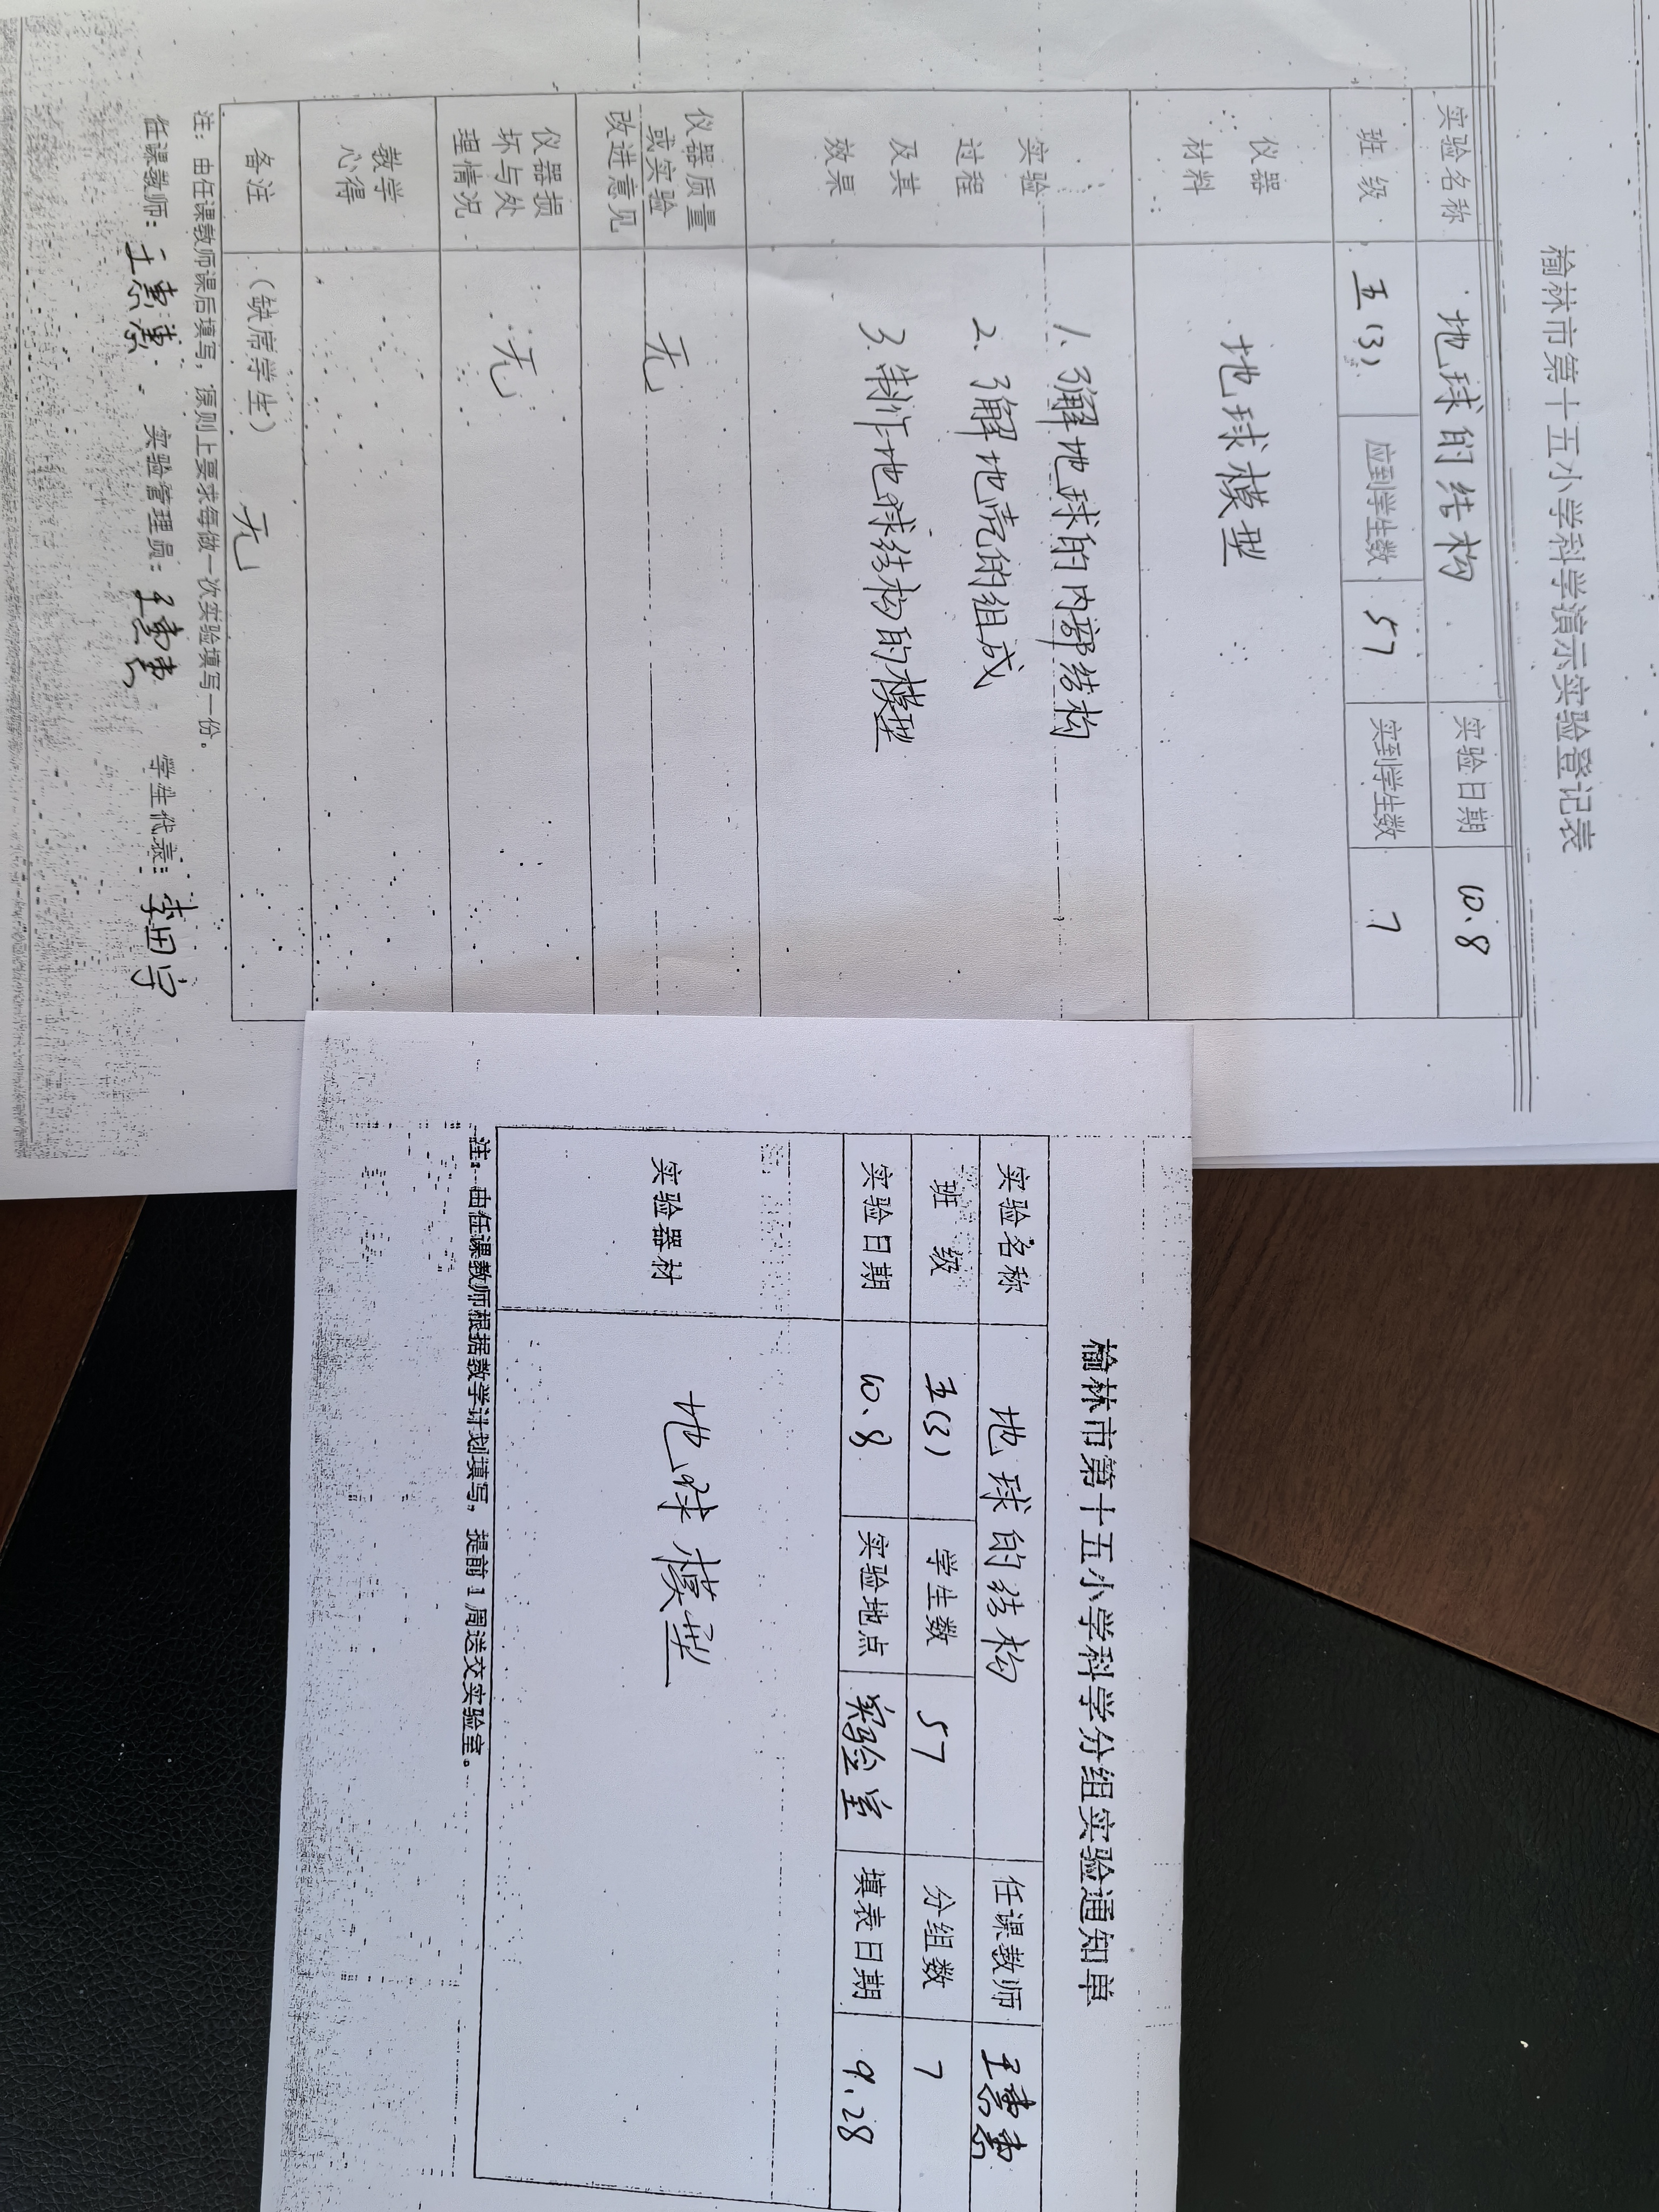 榆林市第十五小学科学演示实验登记表
实验名称 地球的结构 实验日期 10.8
班级 五(3) 应到学生数 57 实到学生数 7
仪器材料 地球模型
实验过程及其效果
1.了解地球的内部结构
2.了解地壳的组成
3.制作地球结构的模型
仪器质量或实验改进意见 无
仪器损坏与处理情况 无
教学心得
备注 (缺席学生) 无
注：由任课教师课后填写，原则上要求每做一次实验填写一份。
任课教师：王 实验管理员：王 学生代表：李田宇
榆林市第十五小学科学分组实验通知单
实验名称 地球的结构 任课教师 王
班级 五(3) 学生数 57 分组数 7
实验日期 10.8 实验地点 实验室 填表日期 9.28
实验器材 地球模型
注：由任课教师根据教学计划填写，提前1周送交实验室。